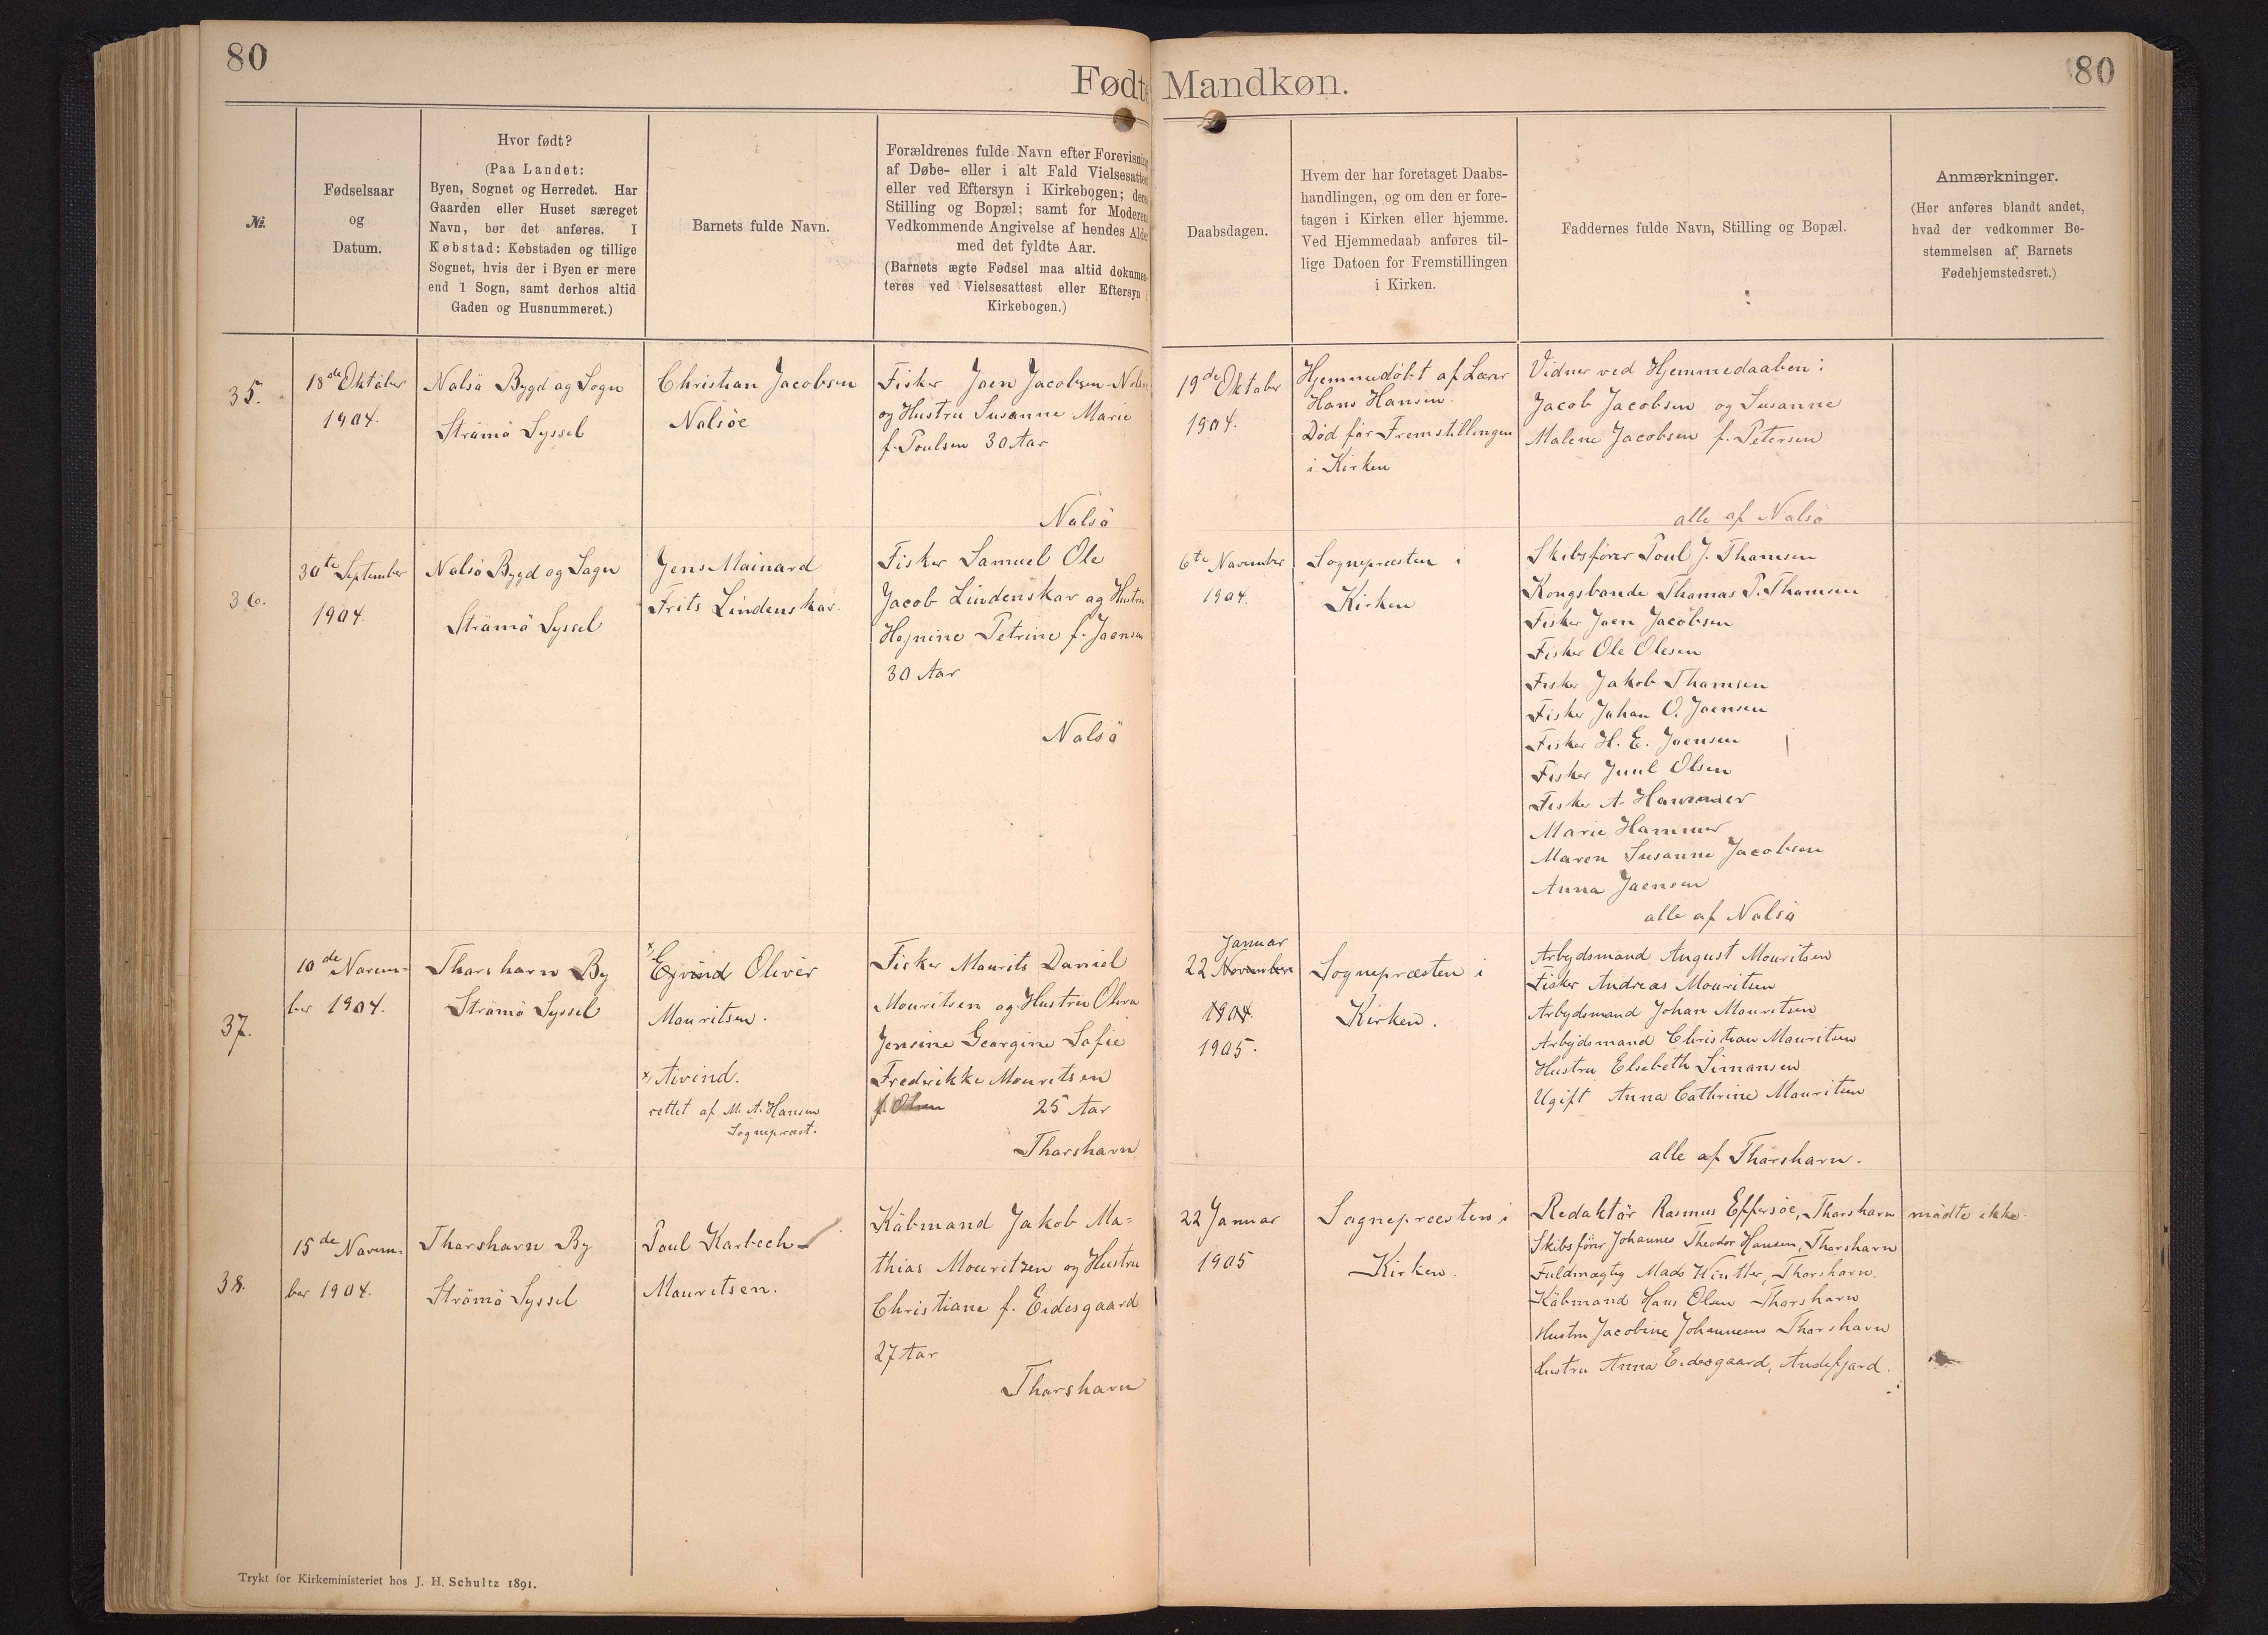 80
Fødte Mandkøn.
80
№.
Fødselsaar
og
Datum.
Hvor født?
(Paa Landet:
Byen, Sognet og Herredet. Har
Gaarden eller Huset særeget
Navn, bør det anføres. I
Købstad: Købstaden og tillige
Sognet, hvis der i Byen er mere
end 1 Sogn, samt derhos altid
Gaden og Husnummeret.)
Barnets fulde Navn.
Forældrenes fulde Navn efter Forevisning
af Døbe- eller i alt Fald Vielsesattest
eller ved Eftersyn i Kirkebogen; deres
Stilling og Bopæl; samt for Moderens
Vedkommende Angivelse af hendes Alder
med det fyldte Aar.
(Barnets ægte Fødsel maa altid dokumen-
teres ved Vielsesattest eller Eftersyn i
Kirkebogen.)
Daabsdagen.
Hvem der har foretaget Daabs-
handlingen, og om den er fore-
tagen i Kirken eller hjemme.
Ved Hjemmedaab anføres til-
lige Datoen for Fremstillingen
i Kirken.
Faddernes fulde Navn, Stilling og Bopæl.
Anmærkninger.
(Her anføres blandt andet,
hvad der vedkommer Be-
stemmelsen af Barnets
Fødehjemstedsret.)
35.
18de Oktober
1904.
Nalsö Bygd og Sogn
Strömö Syssel
Christian Jacobsen
Nalsöe
Fisker Joen Jacobsen-Nolsö
og Hustru Susanne Marie
f. Poulsen 30 Aar
Nalsö
19de Oktober
1904.
Hjemmedöbt af Lærer
Hans Hansen.
Död för Fremstillingen
i Kirken
Vidner ved Hjemmedaaben:
Jacob Jacobsen og Susanne
Malene Jacobsen f. Petersen
alle af Nalsö
36.
30te September
1904.
Nalsö Bygd og Sogn
Strömö Syssel
Jens Mainard
Frits Lindenskov.
Fisker Samuel Ole
Jacob Lindenskov og Hustru
Hejnine Petrine f. Joensen
30 Aar
Nalsö
6te November
1904.
Sognepræsten i
Kirken
Skibsförer Poul J. Thomsen
Kongsbonde Thomas P. Thomsen
Fisker Joen Jacobsen
Fisker Ole Olesen
Fisker Jakob Thomsen
Fisker Johan O. Joensen
Fisker H. E. Joensen
Fisker Juul Olsen
Fisker A. Hammer
Marie Hammer
Maren Susanne Jacobsen
Anna Joensen
alle af Nalsö
37.
10de Novem-
ber 1904.
Thorshavn By
Strömö Syssel
x) Ejvind Oliver
Mouritsen.
x) Aivind.
rettet af M. A. Hansen
Sognepræst.
Fisker Mourits Daniel
Mouritsen og Hustru Oliva
Jensine Georgine Sofie
Fredrikke Mouritsen
f. Olsen 25 Aar
Thorshavn
Januar
22 November
1904.
1905.
Sognepræsten i
Kirken.
Arbejdsmand August Mouritsen
Fisker Andreas Mouritsen
Arbejdsmand Johan Mouritsen
Arbejdsmand Christian Mouritsen
Hustru Elsebeth Simonsen
Ugift Anna Cathrine Mouritsen
alle af Thorshavn.
38.
15de Novem-
ber 1904.
Thorshavn By
Strömö Syssel
Poul Karbech
Mouritsen.
Köbmand Jakob Ma=
thias Mouritzen og Hustru
Christiane f. Eidesgaard
27 Aar
Thorshavn
22 Januar
1905
Sognepræsten i
Kirken.
Redaktör Rasmus Effersöe, Thorshavn
mödte ikke.
Skibsförer Johannes Theodor Hansen, Thorshavn
Fuldmægtig Mads Winther, Thorshavn.
Köbmand Hans Olsen Thorshavn
Hustru Jacobine Johannesen Thorshavn
Hustru Anna Eidesgaard, Andefjord.
Trykt for Kirkeministeriet hos J. H. Schultz 1891.